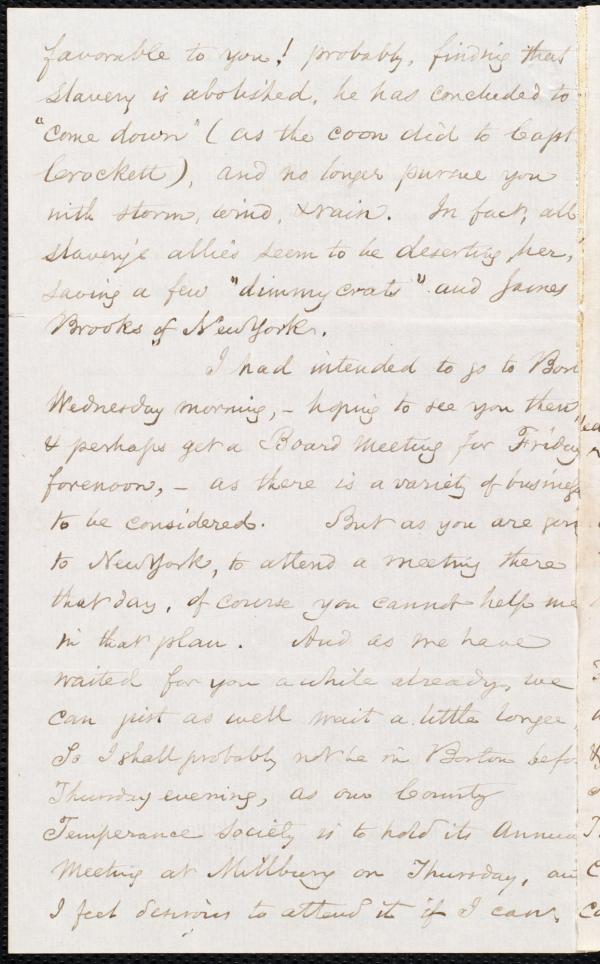 favorable to you! probably, finding that
slavery is abolished, he has concluded to
"come down" (as the coon did to Capt
Crockett), and no longer pursue you
with storm, wind, & rain. In fact, all
slavery's allies seem to be deserting her,
saving a few "dimmycrats" and James
Brooks, of New York.
I had intended to go to Bos
Wednesday morning, - hoping to see you then
& perhaps get a Board meeting for Friday
forenoon, - as there is a variety of business
to be considered. But as you are going
to New York, to attend a meeting there
that day, of course you cannot help me
in that plan. And as we have
waited for you awhile already, we
can just as well wait a little longer.
So I shall probably not be in Boston befo
Thursday evening, as our County
Temperance Society is to hold its Annua
Meeting at Millbury on Thursday, an
I feel desirous to attend it if I can.